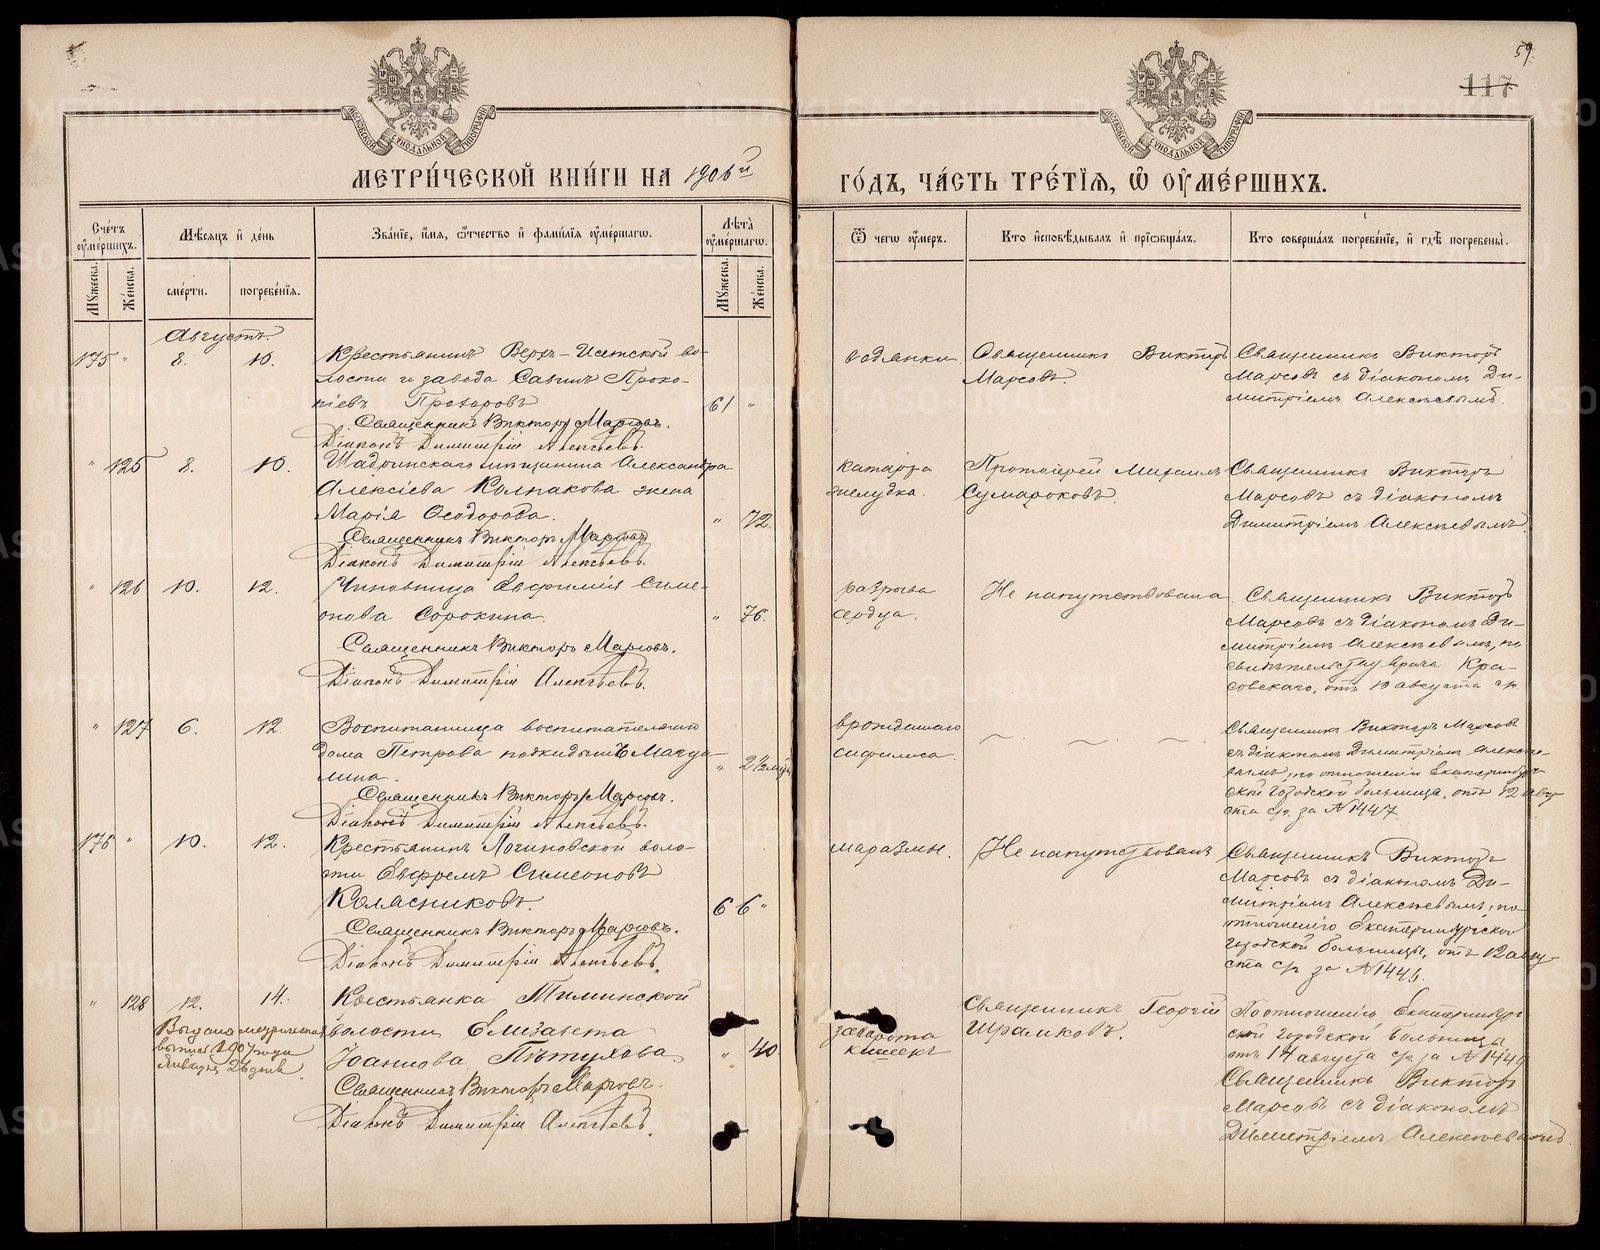 59.
117
МЕТРИ́ЧЕСКОЙ КНИ́ГИ НА 1906й
ГО́ДЪ, ЧА́СТЬ ТРЕ́ТІЯ, Ѡ҆ ОУ҆МЕ́РШИХЪ.
Сче́тъ оу҆ме́ршихъ.
Мѣ́сяцъ и҆ де́нь
Зва́ніе, и҆́мя, ѻ҆́тчество и҆ фами́лія оу҆ме́ршагѡ.
Лѣ́та оу҆ме́ршагѡ.
Ѿ чегѡ̀ оу҆́меръ.
Кто̀ и҆сповѣ́дывалъ и҆ прїѡбща́лъ.
Кто̀ соверша́лъ погребе́ніе, и҆ гдѣ̀ погребены̀.
Мꙋ́жеска.
Же́нска.
сме́рти.
погребе́нїя.
Мꙋ́жеска.
Же́нска.
Августъ.
175 " 8. 10. Крестьянинъ Верхъ-Исетской во-
лости и завода Савинъ Проко-
піевъ Прохоровъ 61 "
Священникъ Викторъ Марсовъ.
Діаконъ Димитрій Алексѣевъ.
водянки Священникъ Викторъ
Марсовъ.
Священникъ Викторъ
Марсовъ съ діакономъ Ди-
митріемъ Алексѣевымъ.
" 125 8. 10. Шадринскаго мѣщанина Александра
Алексіева Колпакова жена
Марія Ѳеодорова. " 72.
Священникъ Викторъ Марсовъ
Діаконъ Димитрій Алексѣевъ.
катарра
желудка.
Протоіерей Михаилъ
Сумароковъ.
Священникъ Викторъ
Марсовъ съ діакономъ
Димитріемъ Алексѣевымъ
" 126 10. 12. Чиновница Евфимія Симе-
онова Сорокина. " 76.
Священникъ Викторъ Марсовъ.
Діаконъ Димитрій Алексѣевъ.
разрыва
сердца.
Не напутствована
Священникъ Викторъ
Марсовъ съ діакономъ Ди-
митріемъ Алексѣевымъ, по
свидѣтельству врача Кра-
совскаго, отъ 10 августа с/г.
" 127 6. 12. Воспитанница воспитательнаго
дома Петрова подкидышъ Магда-
лина. " 2½ мѣс.
Священникъ Викторъ Марсовъ.
Діаконъ Димитрій Алексѣевъ.
врожденнаго
сифилиса.
Священникъ Викторъ Марсовъ
съ діакономъ Димитріемъ Алексѣе-
вымъ, по отношенію Екатеринбург-
ской городской больницы, отъ 12 авгу-
ста с/г. за №1447.
176 " 10. 12. Крестьянинъ Логиновской воло-
сти Евфремъ Симеоновъ
Колясниковъ. 66 "
Священникъ Викторъ Марсовъ.
Діаконъ Димитрій Алексѣевъ.
маразмы.
Не напутствованъ
Священникъ Викторъ
Марсовъ съ діакономъ Ди-
митріемъ Алексѣевымъ, по
отношенію Екатеринбургской
городской больницы, отъ 12 авгу-
ста с/г. за №1445.
" 128 12. 14. Крестьянка Тиминской
волости Елизавета
Іоаннова Пѣтухова " 40.
Священникъ Викторъ Марсовъ.
Діаконъ Димитрій Алексѣевъ.
Выдана метрическая
выпись 1907 года
Января 26 дня.
заворота
кишекъ
Священникъ Георгій
Шрамковъ.
По отношенію Екатеринбург
ской городской больницы
отъ 14 августа с/г. за №1449
Священникъ Викторъ
Марсовъ съ діакономъ
Димитріемъ Алексѣевымъ.